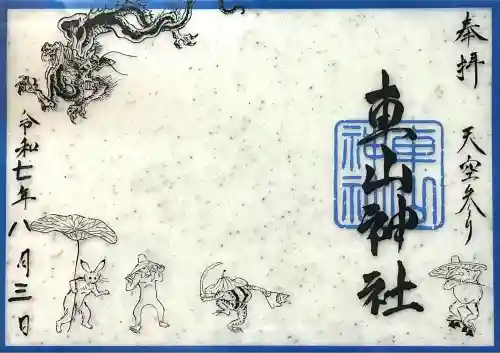 奉拝
天空参り
車山神社
車山神社
令和七年八月三日